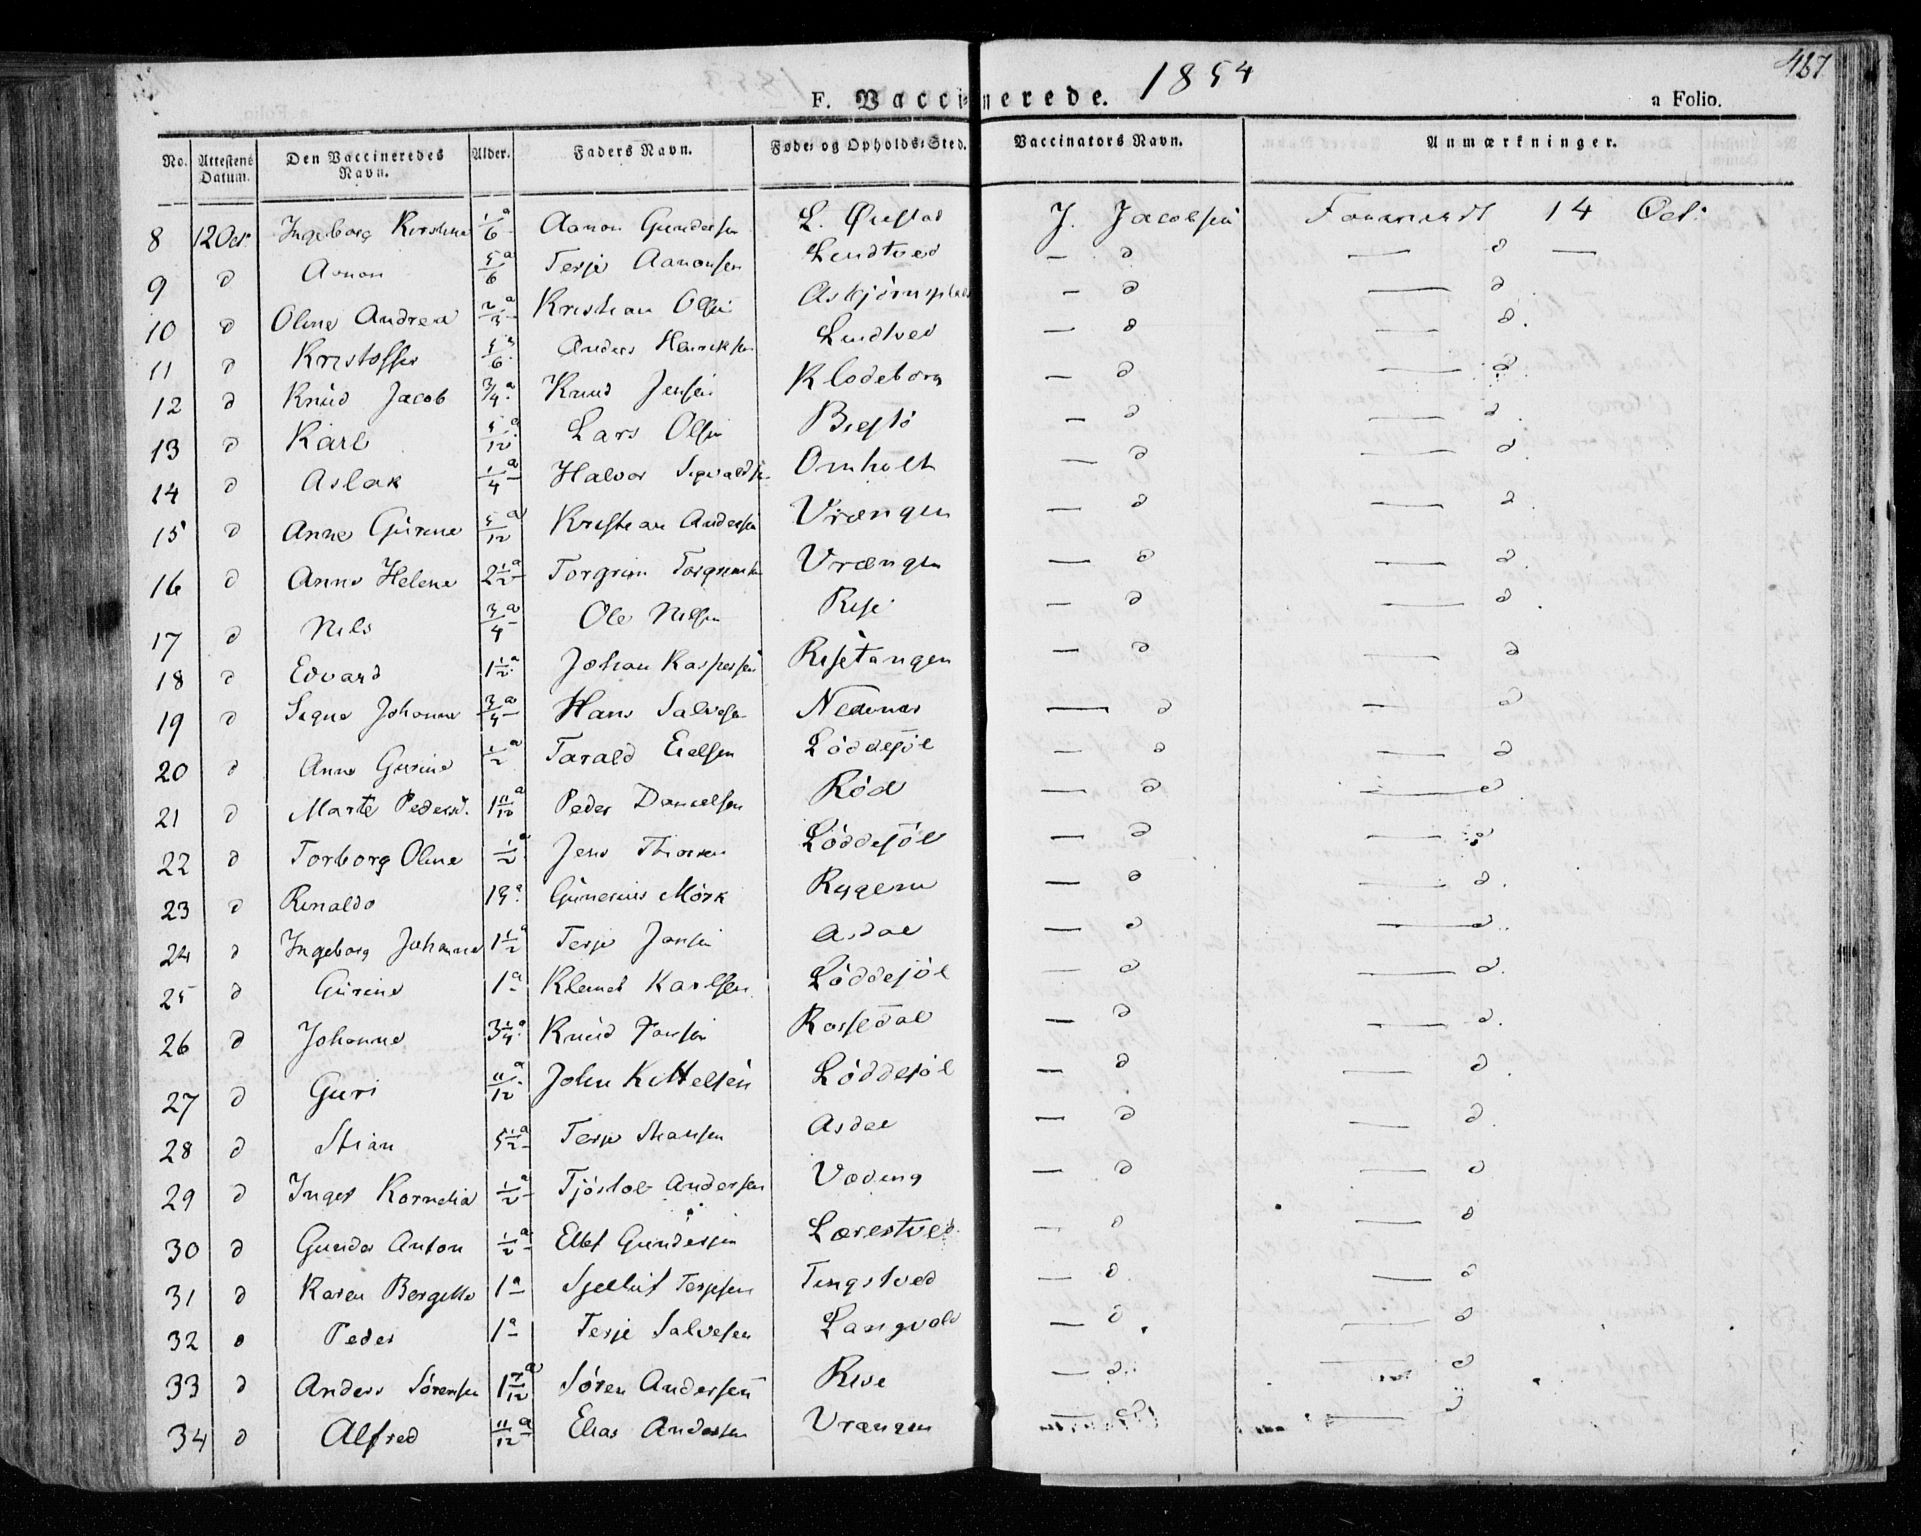 1854
467
F. Vaccinerede.
a Folio.
No. Attestens Datum. Den Vaccineredes Navn. Alder. Faders Navn. Føde- og Opholds-Sted. Vaccinators Navn. Anmærkninger.
8 12 Oct: Ingeborg Kirstine 1/6 a Aanon Gundersen L. Øiestad J. Jacobsen 14 Oct:
9 d Aanon 5/6 a Terje Aanonsen Lundtved — d — d —
10 d Oline Andrea 2/3 a Kristian Olsen Asbjörnsplads — d — d
11 d Kristoffer 5/6 a Anders Henriksen Lundtved — d — d.
12 d Knud Jacob 3/4 a Knud Jensen Klodeborg — d — d
13 d Karl 5/12 a Lars Olsen — d — d
14 d Aslak 1/4 a Halvor Sigvaldsen Omholt — d — d.
15 d Anne Gurine 5/12 a Kristian Andersen Vrængen — d — d
16 d Anne Helene 2 1/2 a Torgrim Torgrimsen Vrængen — d — d
17 d Nils 3/4 a Ole Nilsen Rise — d — d
18 d Edvard 1 1/2 a Johan Kaspersen Risetangen — d — d
19 d Signe Johanne 3/4 a Hans Salvesen Nedenes — d — d
20 d Anne Gurine 1/2 a Tarald Eielsen Löddesöl — d — d
21 d Marte Pedersd. 1 11/12 a Peder Danielsen Röd — d — d
22 d Torborg Oline 1/2 a Jens Löddesöl — d — d
23 d Rinaldo 19 a Gunerius Mörk Rygene — d — d.
24 d Ingeborg Johanne 1 1/2 a Terje Jansen Asdal — d — d.
25 d Gurine 1 a Klemet Karlsen Löddesöl — d — d.
26 d Johanne 3 1/4 a Knud Jansen Rossedal — d — d.
27 d Guri 11/12 a John Kittelsen Löddesöl — d — d
28 d Stian 5 1/2 a Terje Asdal — d — d.
29 d Inger Kornelia 1/2 a Tjöstol Andersen — d — d
30 d Gunder Anton 1/2 a Ellef Gundersen Lærestved — d — d
31 d Karen Bergitte 1 a Terjesen Tingstved — d — d
32 d Peder 1 a Terje Salvesen Langvold — d — d
33 d Anders Sörensen 1 7/12 a Sören Andersen Rise — d — d
34 d Alfred 11/12 a Elias Andersen Vrængen